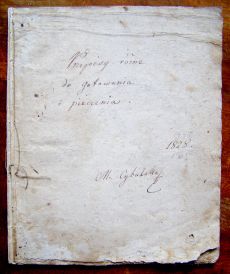 Przepisy różne
do gotowania
i pieczenia.
1828
M.